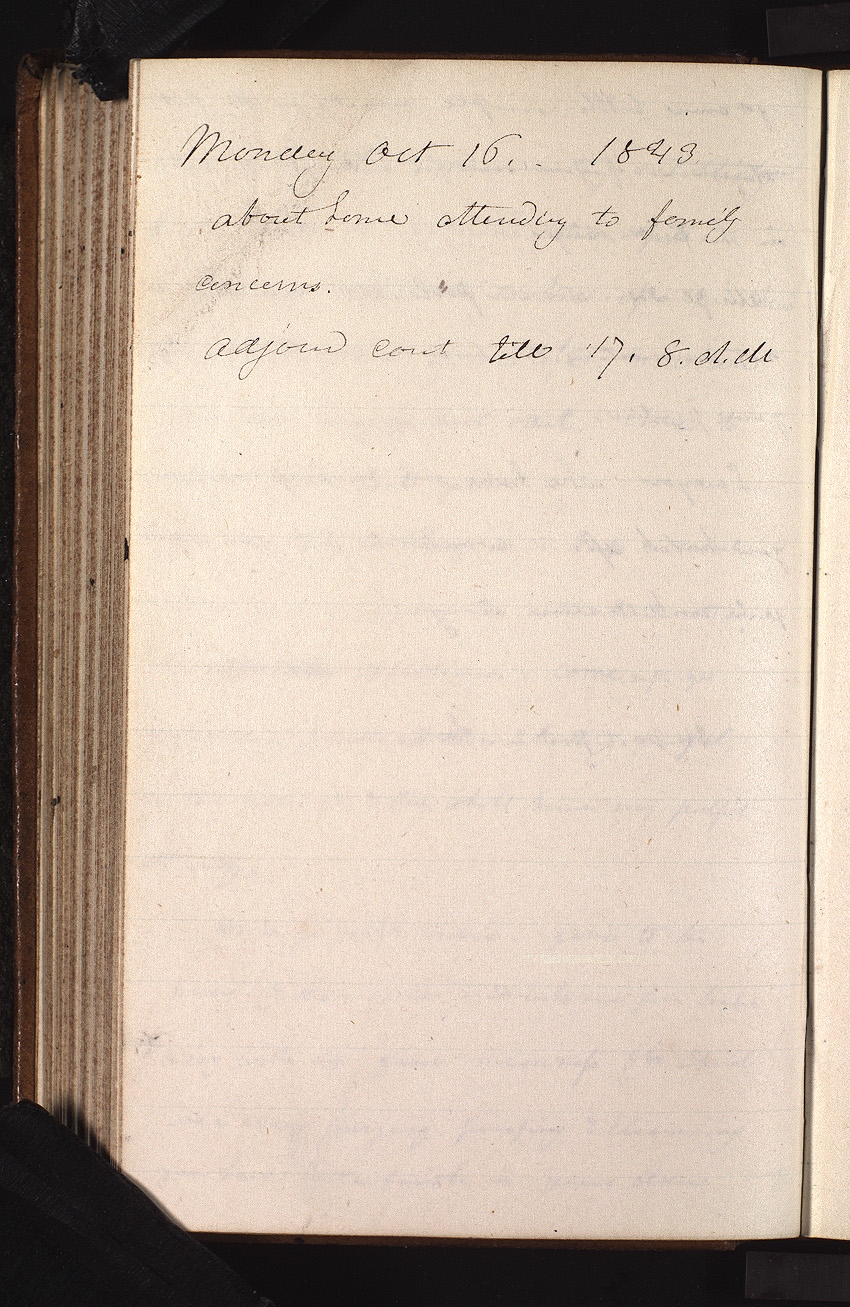 Monday Oct 16. 1843
about home attending to family
concerns.
adjourd cout till 17. 8. A.M